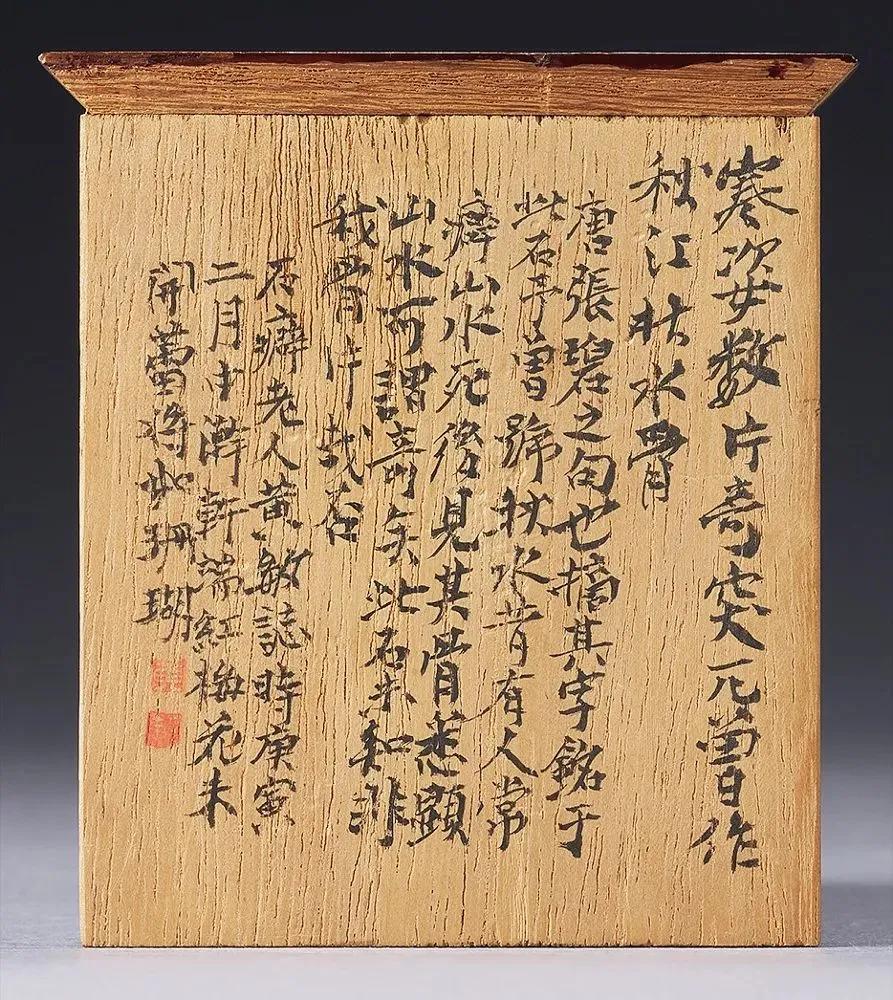 寒姿数片奇突兀曾作
秋江秋水骨
唐張碧之句也摘其字銘于
此石予曾號秋水昔有人常
癖山水死後見其骨悉顯
山水可謂奇矣此石未知非
我骨片哉否
石癖老人黄敏誌時庚寅
二月中澣軒端紅梅花未
開蕾將如珊瑚